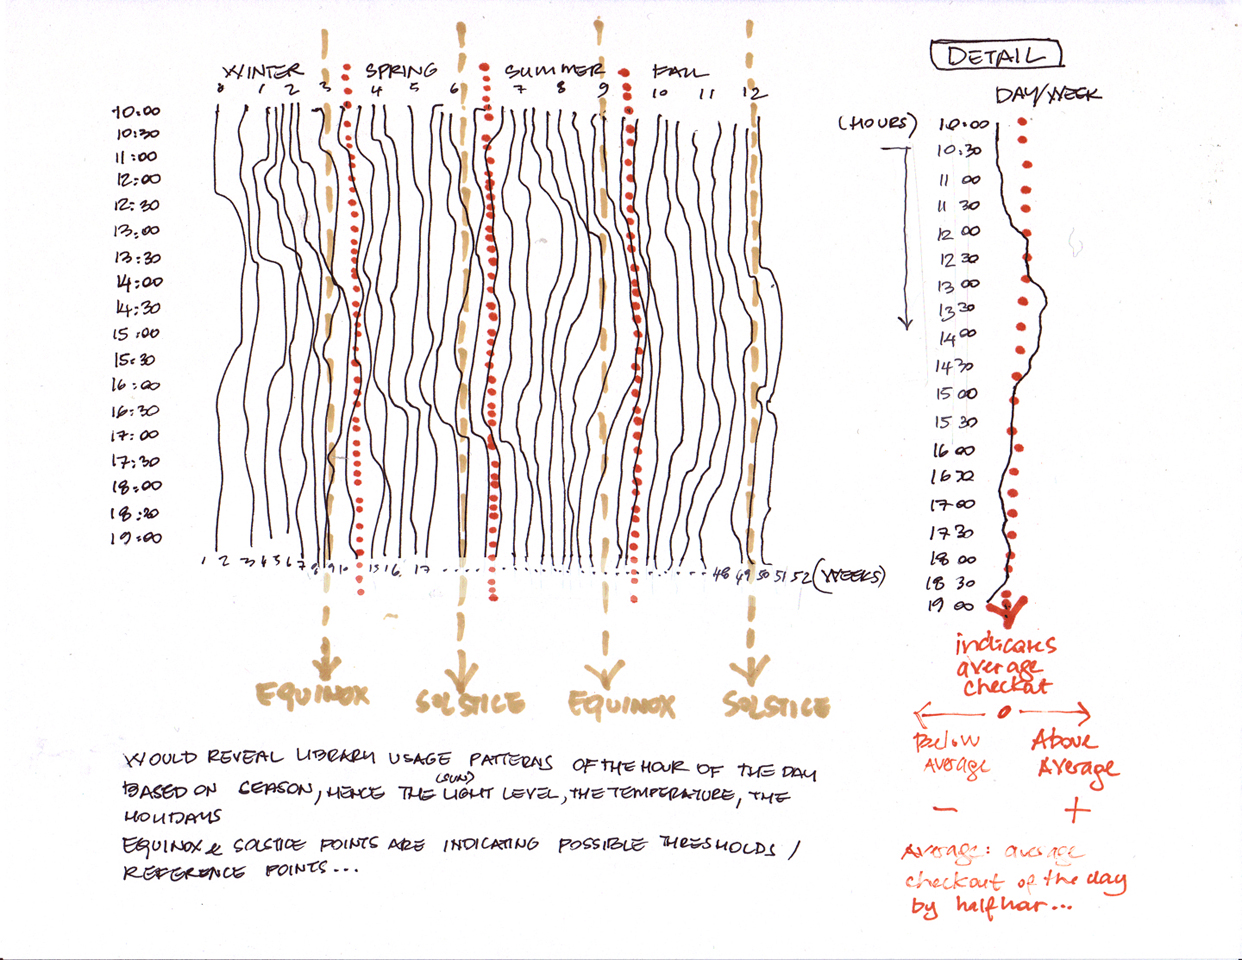 WINTER SPRING SUMMER FALL
0 1 2 3 4 5 6 7 8 9 10 11 12
10:00
10:30
11:00
12:00
12:30
13:00
13:30
14:00
14:30
15:00
15:30
16:00
16:30
17:00
17:30
18:00
18:30
19:00
1 2 3 4 5 6 7 8 9 10 15 16 17 ........ 48 49 50 51 52 (WEEKS)
EQUINOX SOLSTICE EQUINOX SOLSTICE
WOULD REVEAL LIBRARY USAGE PATTERNS OF THE HOUR OF THE DAY
BASED ON SEASON, HENCE THE (SUN) LIGHT LEVEL, THE TEMPERATURE, THE
HOLIDAYS
EQUINOX & SOLSTICE POINTS ARE INDICATING POSSIBLE THRESHOLDS /
REFERENCE POINTS...
DETAIL
DAY/WEEK
(HOURS)
10:00
10:30
11 00
11 30
12 00
12 30
13 00
13 30
14 00
14 30
15 00
15 30
16 00
16 30
17 00
17 30
18 00
18 30
19 00
indicates
average
checkout
Below
Average
Above
Average
– +
Average: average
checkout of the day
by half hour...